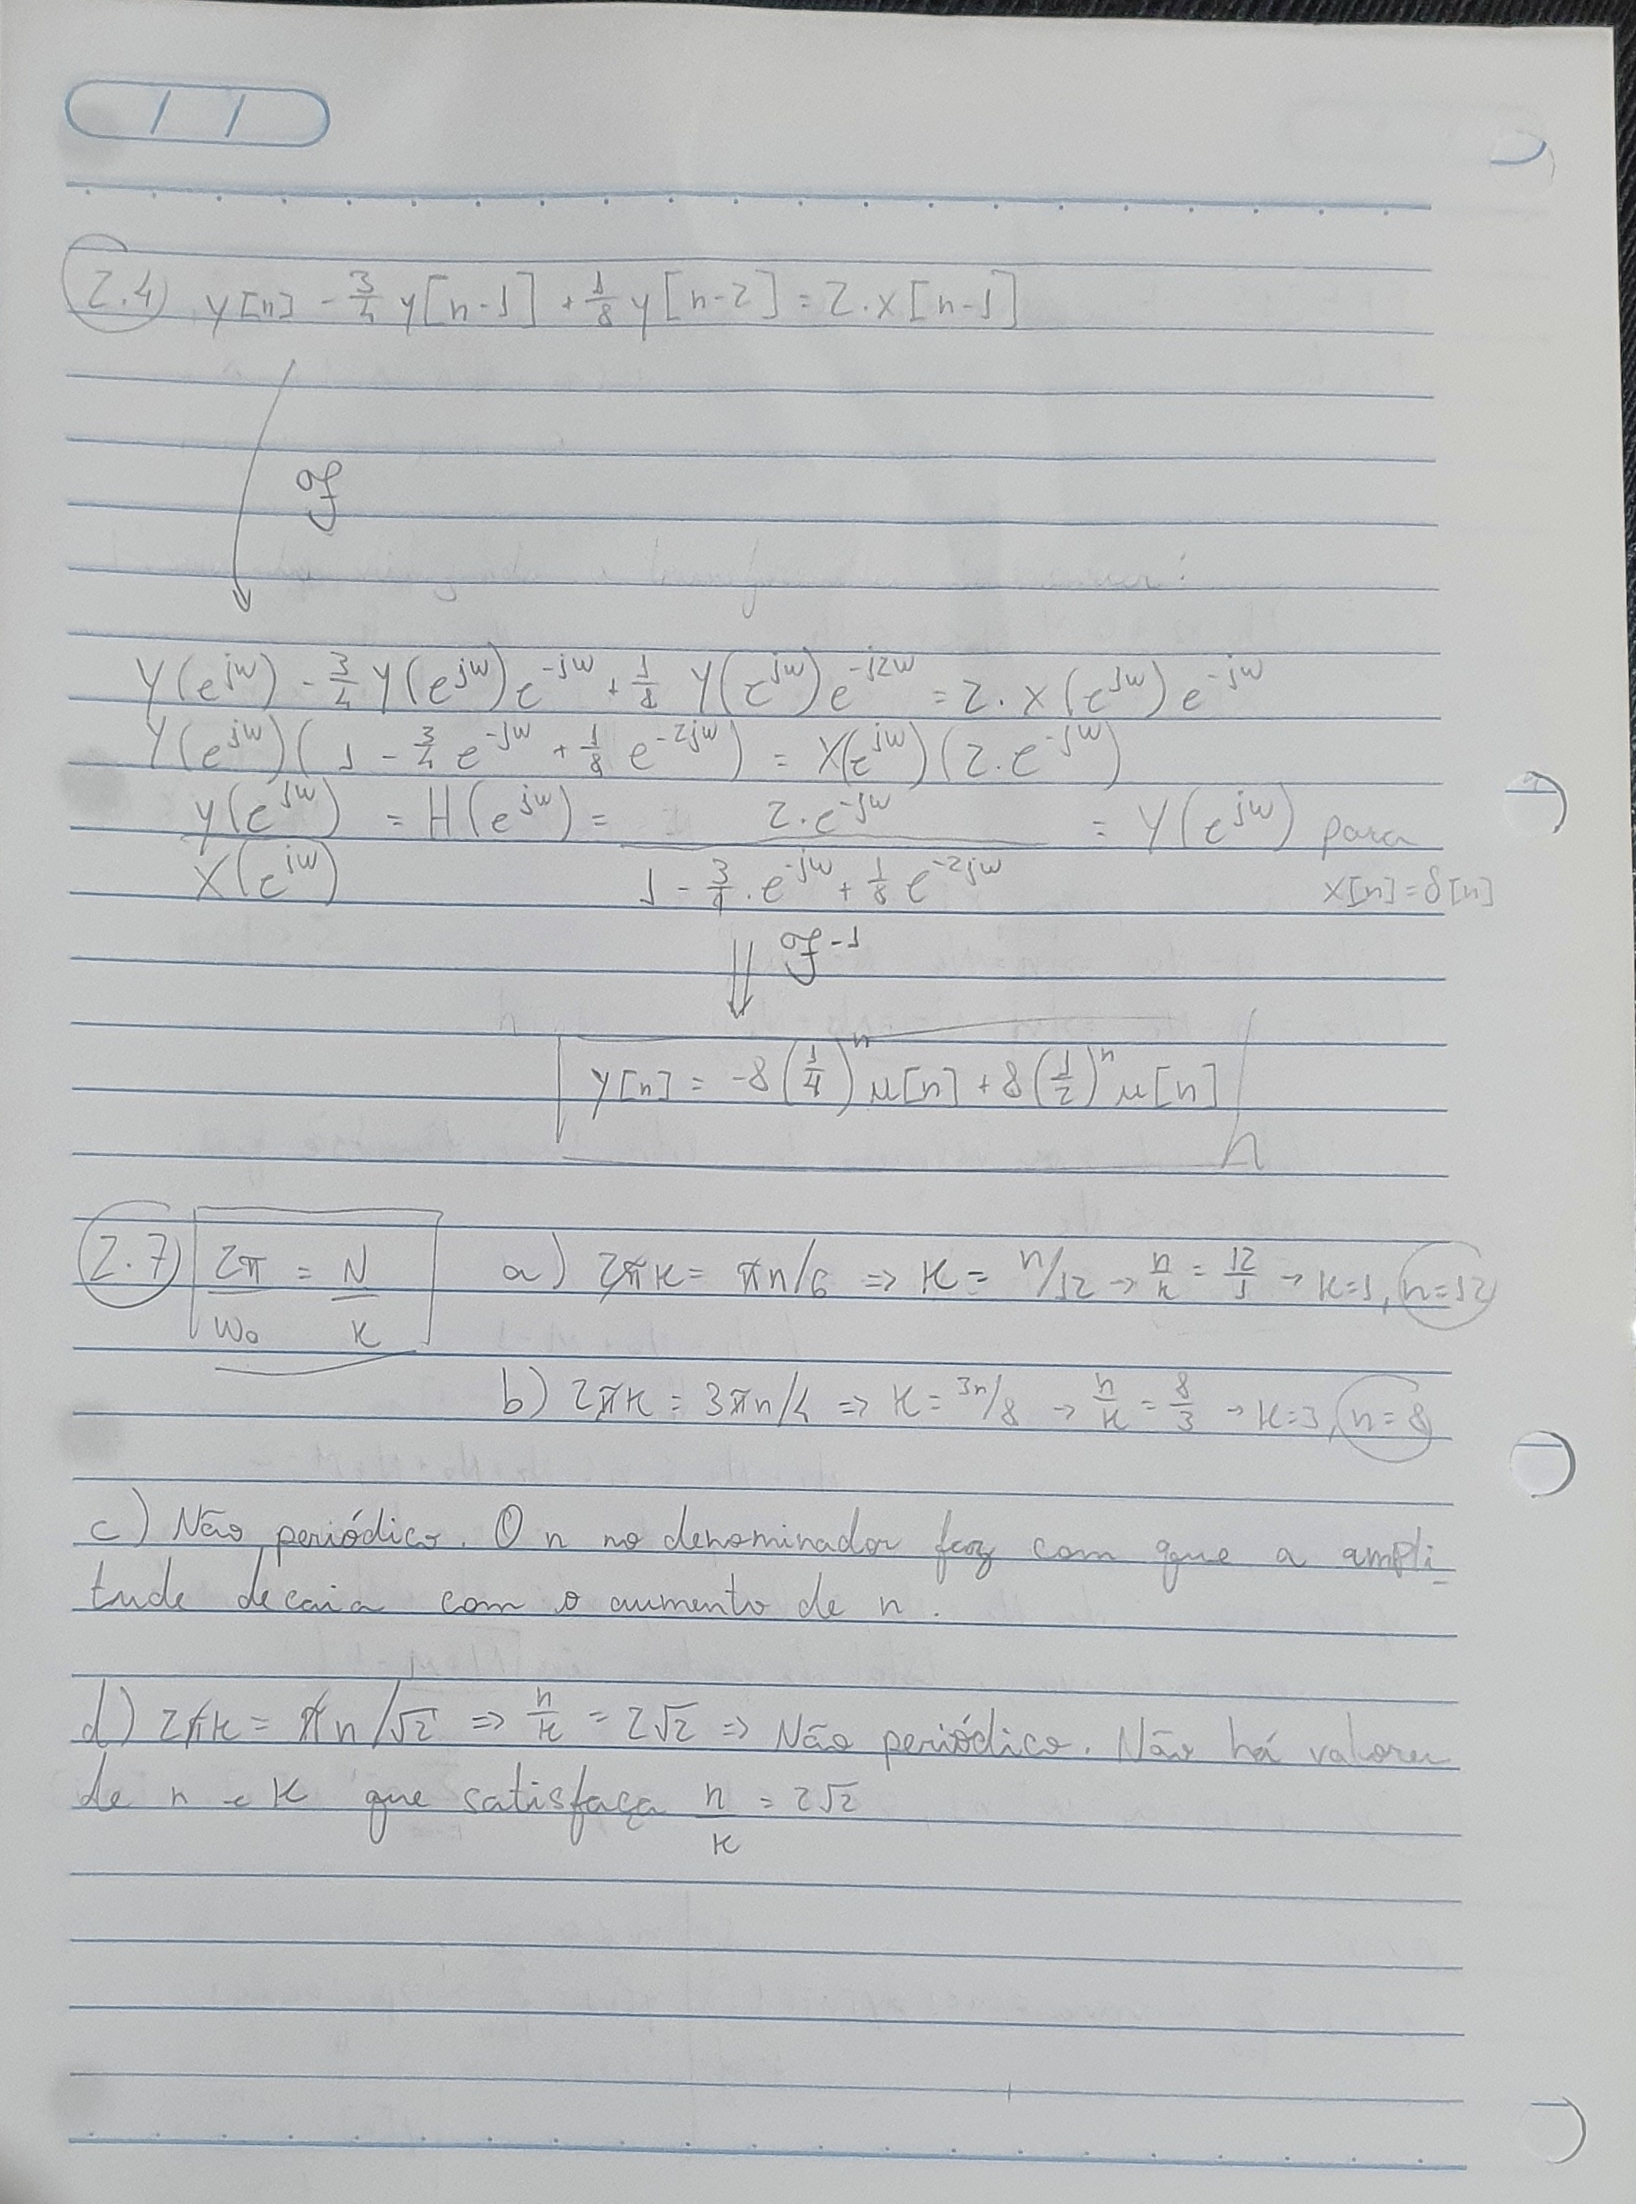 2.4) y[n] - 3/4 y[n-1] + 1/8 y[n-2] = 2·x[n-1]
ℱ
Y(e^jω) - 3/4 Y(e^jω) e^-jω + 1/8 Y(e^jω) e^-j2ω = 2·X(e^jω) e^-jω
Y(e^jω)(1 - 3/4 e^-jω + 1/8 e^-2jω) = X(e^jω)(2·e^-jω)
Y(e^jω)/X(e^jω) = H(e^jω) = 2·e^-jω / (1 - 3/4·e^-jω + 1/8 e^-2jω) = Y(e^jω) para
x[n] = δ[n]
⇓ ℱ^-1
y[n] = -8(1/4)^n μ[n] + 8(1/2)^n μ[n]
2.7) 2π/ω₀ = N/K a) 2πK = πn/6 ⇒ K = n/12 → n/K = 12/1 → K=1, n=12
b) 2πK = 3πn/4 ⇒ K = 3n/8 → n/K = 8/3 → K=3, n=8
c) Não periódico. O n no denominador faz com que a ampli-
tude decaia com o aumento de n.
d) 2πK = πn/√2 ⇒ n/K = 2√2 ⇒ Não periódico. Não há valores
de n e K que satisfaça n/K = 2√2